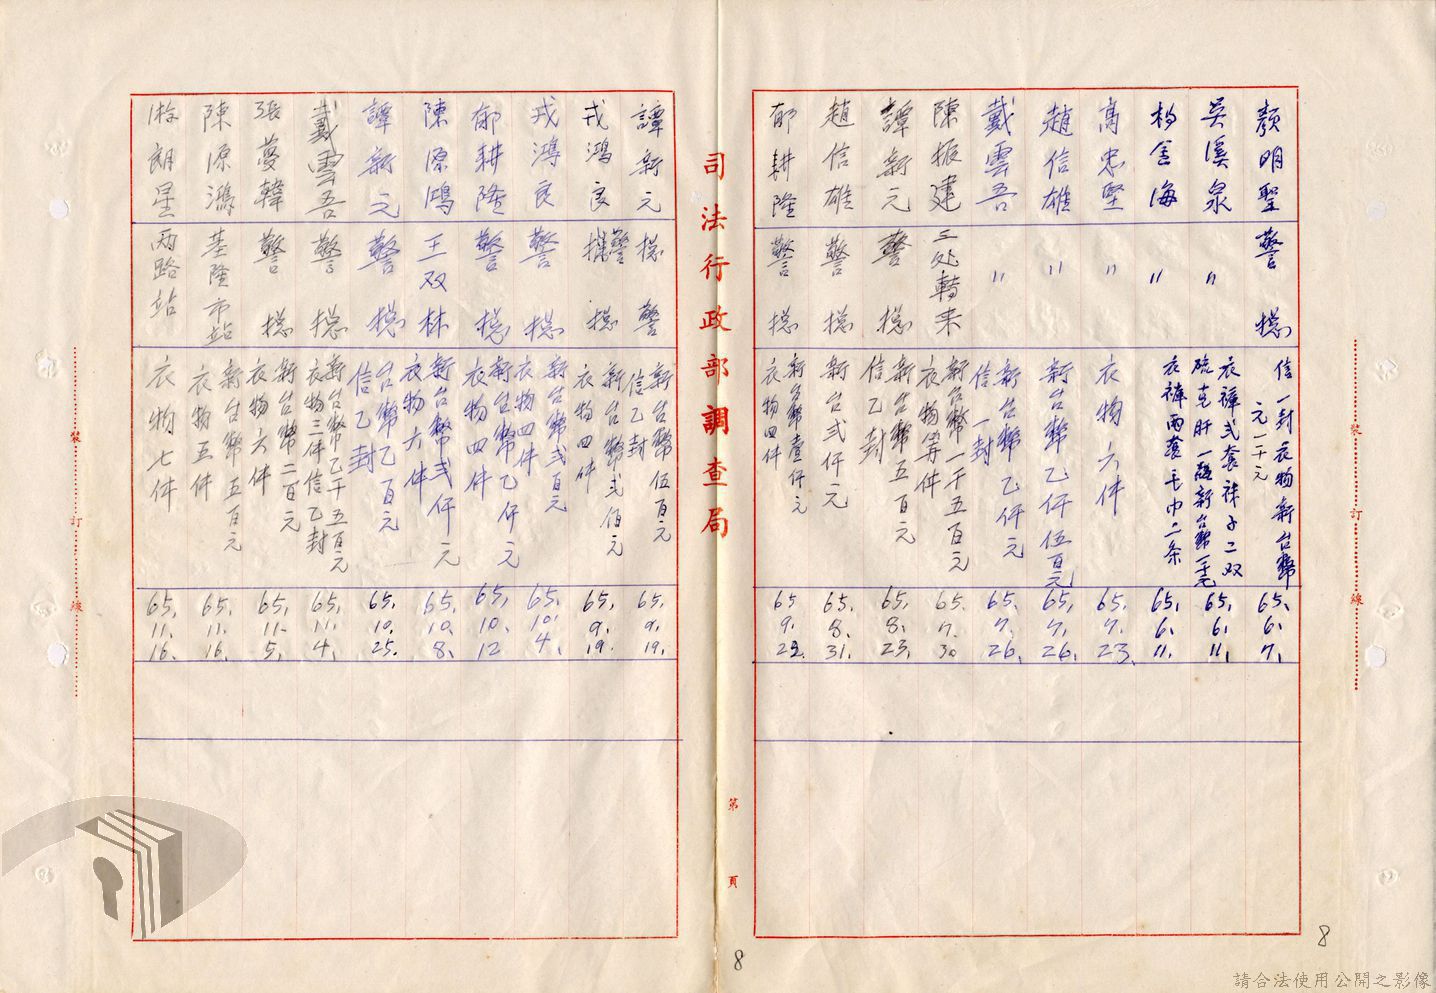 顏明聖 警總 信一封衣物新台幣一千元 65.6.7.
吳溪泉 〃 衣褲弍套袜子二双硫克肝一瓶新台幣一千元 65.6.11.
楊金海 〃 衣褲兩套毛巾二条 65.6.11.
高忠堅 〃 衣物六件 65.7.23.
趙信雄 〃 新台幣乙仟伍百元 65.7.26.
戴雲吾 〃 新台幣乙仟元信一封 65.7.26.
陳振建 三处轉来 新台幣一千五百元衣物等件 65.7.30
譚新元 警總 新台幣五百元信乙封 65.8.23.
趙信雄 警總 新台弍仟元 65.8.31.
郁耕隆 警總 新台幣壹仟元衣物四件 65.9.
司法行政部調查局
第 頁
譚新元 總警 新台幣伍百元信乙封 65.9.19.
戎鴻良 警總 新台幣弍佰元衣物四件 65.9.19.
戎鴻良 警總 新台幣弍百元衣物四件 65.10.4.
郁耕隆 警總 新台幣乙仟元衣物四件 65.10.12
陳源鴻 王双林 新台幣弍仟元衣物六件 65.10.8.
譚新元 警總 台幣乙百元信乙封 65.10.25.
戴雲吾 警總 新台幣乙千五百元衣物三件信乙封 65.11.4.
張夢韓 警總 新台幣二百元衣物六件 65.11.5.
陳源鴻 基隆市站 新台幣五百元衣物五件 65.11.16.
朗星 兩路站 衣物七件 65.11.16.
裝訂線
裝訂線
8
8
請合法使用公開之影像